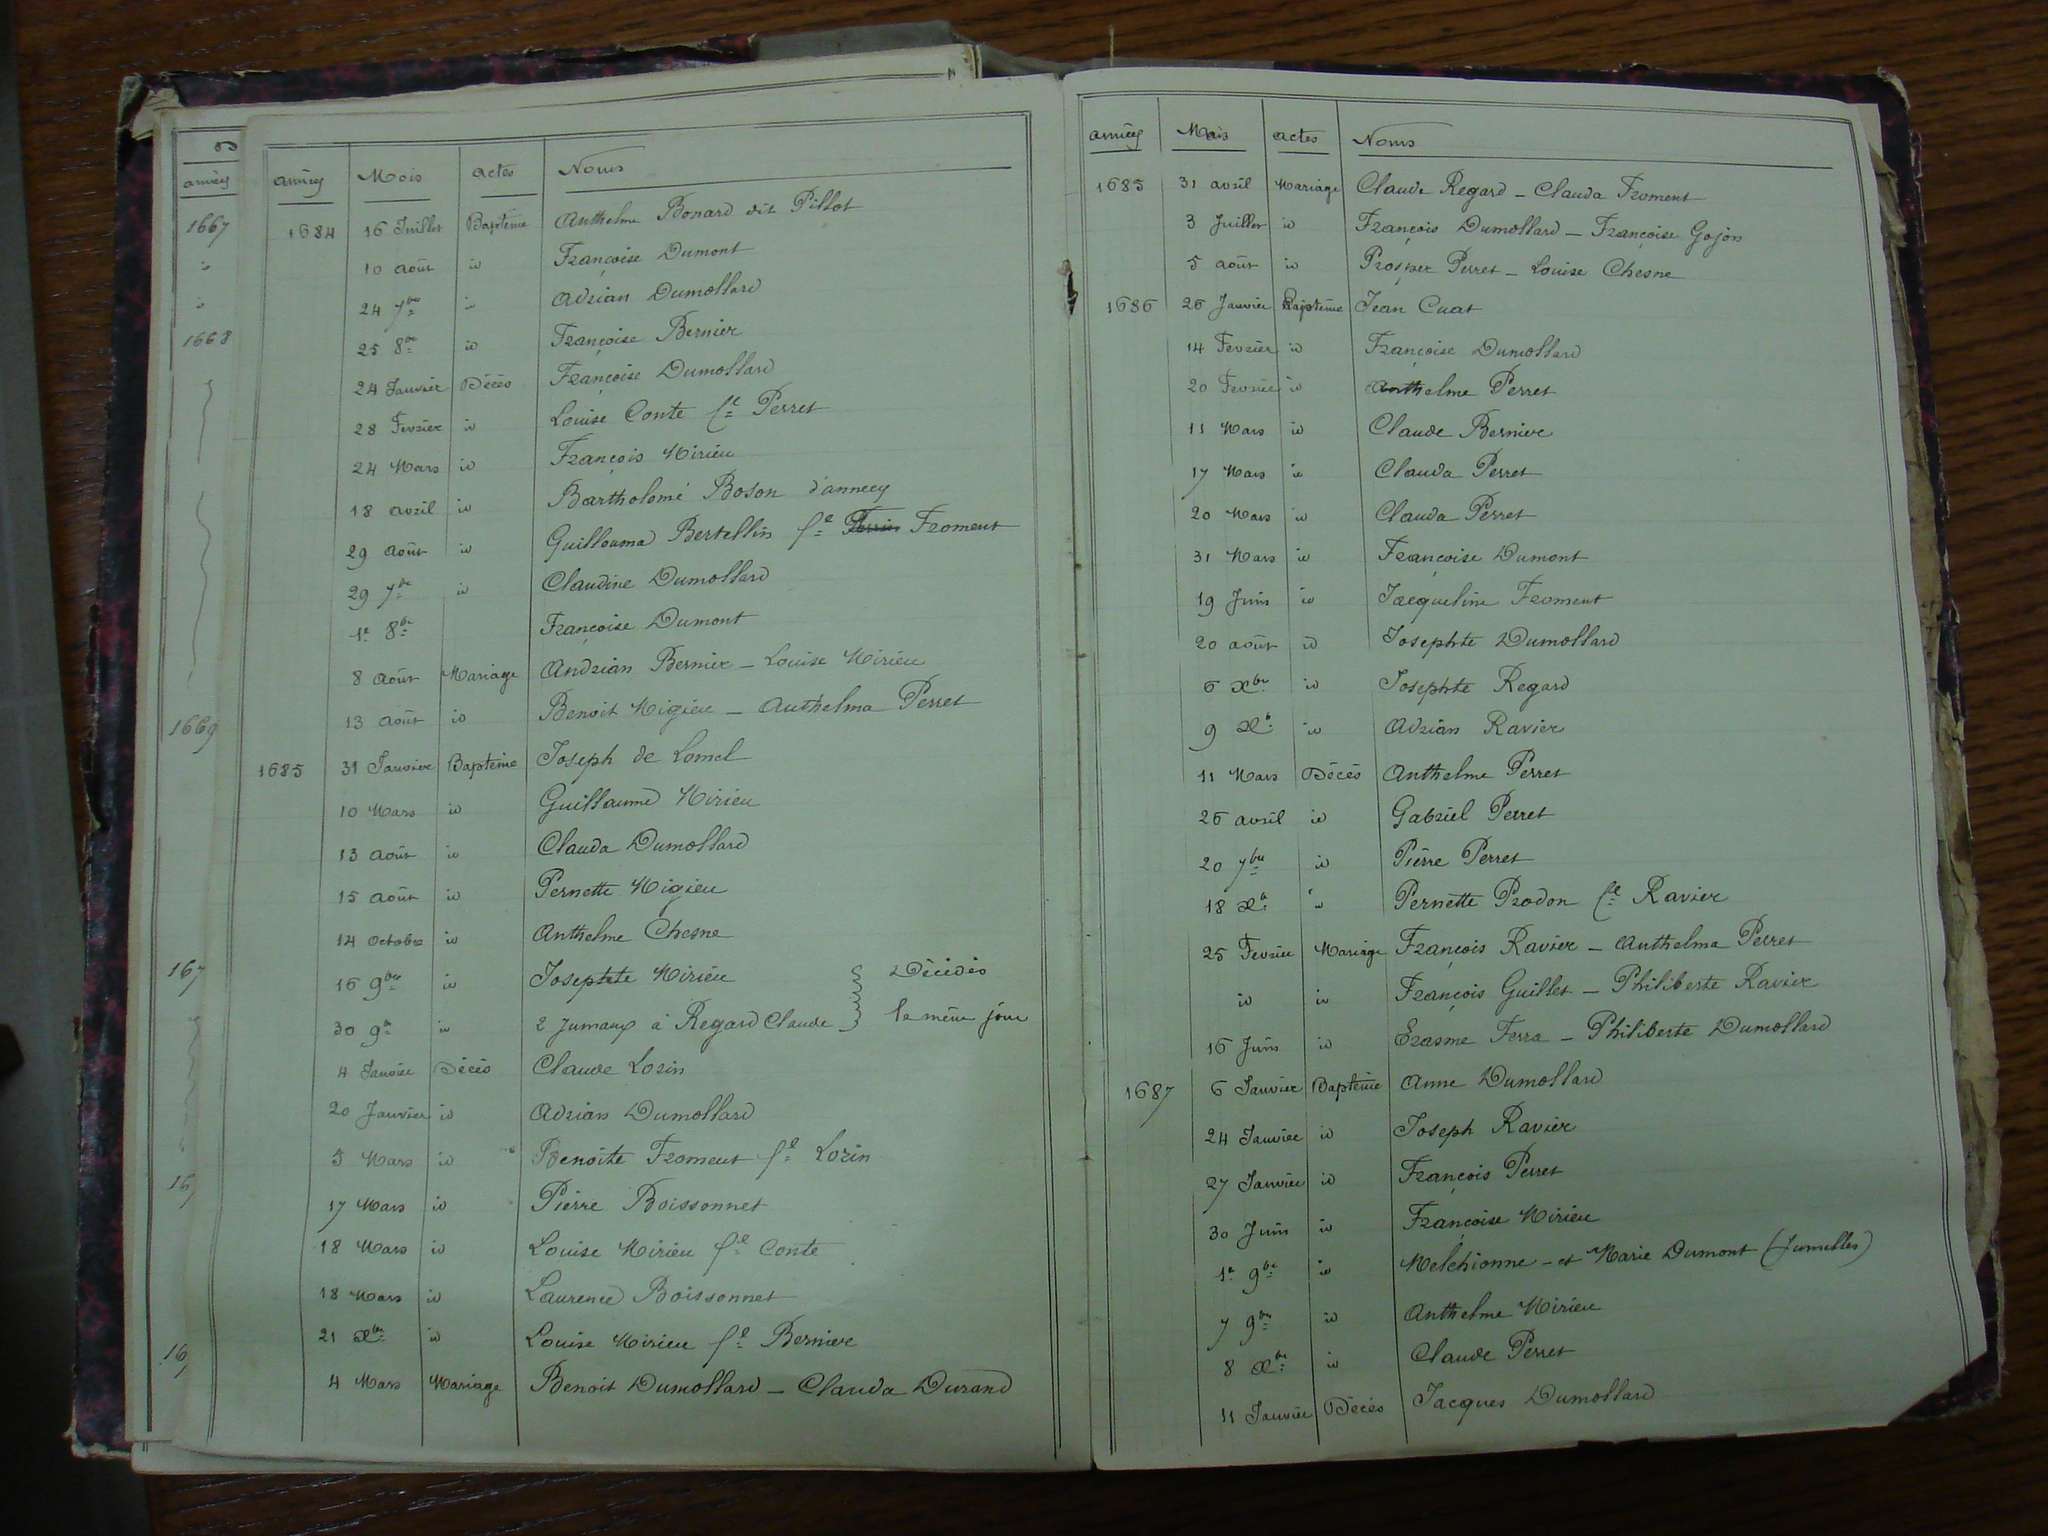 années
1667
id
id
1668
1669
167
16
16
années Mois actes Noms
1684 16 Juillet Baptême Anthelme Bonard dit Pillot
10 août id Françoise Dumont
24 7bre id Adrian Dumollard
25 8bre id Françoise Bernier
24 Janvier Décès Françoise Dumollard
28 Fevrier id Louise Conte fe Perret
24 Mars id François Mirieu
18 avril id Bartholomé Boson d'annecy
29 août id Guillouma Bertellin fe Perrin Froment
29 7bre id Claudine Dumollard
1e 8bre Françoise Dumont
8 août Mariage Andrian Bernier - Louise Mirieu
13 août id Benoit Migieu - Anthelma Perret
1685 31 Janvier Baptême Joseph de Lomel
10 Mars id Guillaume Mirieu
13 août id Clauda Dumollard
15 août id Pernette Migieu
14 octobre id Anthelme Chesne
16 9bre id Josephte Mirieu } Décédés
30 9bre id 2 Jumaux à Regard Claude } le même jour
4 Janvier Décès Claude Lorin
20 Janvier id Adrian Dumollard
5 Mars id Benoite Froment fe Lorin
17 Mars id Pierre Boissonnet
18 Mars id Louise Mirieu fe Conte
18 Mars id Laurence Boissonnet
21 Xbre id Louise Mirieu fe Bernier
4 Mars Mariage Benoit Dumollard - Clauda Durand
années Mois actes Noms
1685 31 avril Mariage Claude Regard - Clauda Froment
3 Juillet id François Dumollard - Françoise Gojon
5 août id Prosper Perret - Louise Chesne
1686 26 Janvier Baptême Jean Cuat
14 Fevrier id Françoise Dumollard
20 Fevrier id Anthelme Perret
11 Mars id Claude Bernier
17 Mars id Clauda Perret
20 Mars id Clauda Perret
31 Mars id Françoise Dumont
19 Juin id Jacqueline Froment
20 août id Josephte Dumollard
6 Xbre id Josephte Regard
9 Xb id Adrian Ravier
11 Mars Décès Anthelme Perret
26 avril id Gabriel Perret
20 7bre id Pierre Perret
18 Xb id Pernette Prodon fe Ravier
25 Fevrier Mariage François Ravier - Anthelma Perret
id id François Guillet - Philiberte Ravier
16 Juin id Erasme Ferra - Philiberte Dumollard
1687 6 Janvier Baptême Anne Dumollard
24 Janvier id Joseph Ravier
27 Janvier id François Perret
30 Juin id Françoise Mirieu
1e 9bre id Melchionne - et Marie Dumont (Jumelles)
7 9bre id Anthelme Mirieu
8 Xbre id Claude Perret
11 Janvier Décès Jacques Dumollard